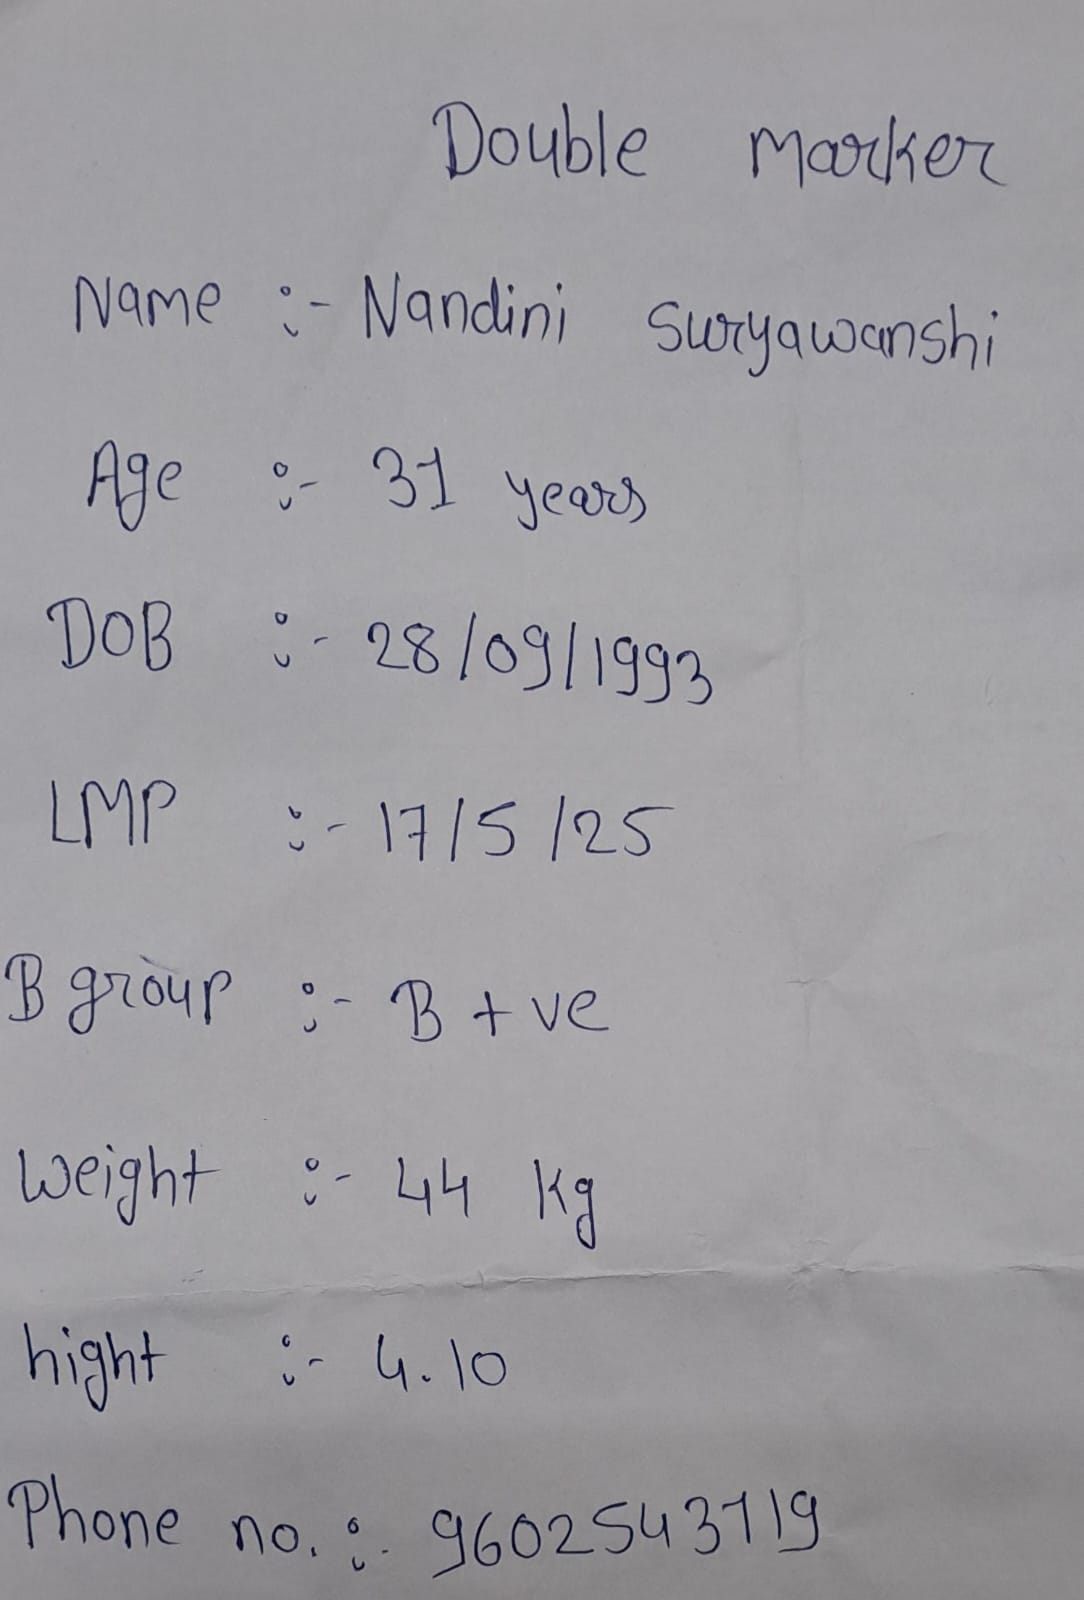 Double Marker
Name :- Nandini Suryawanshi
Age :- 31 years
DOB :- 28/09/1993
LMP :- 17/5/25
B group :- B +ve
Weight :- 44 Kg
hight :- 4.10
Phone no. :- 9602543719